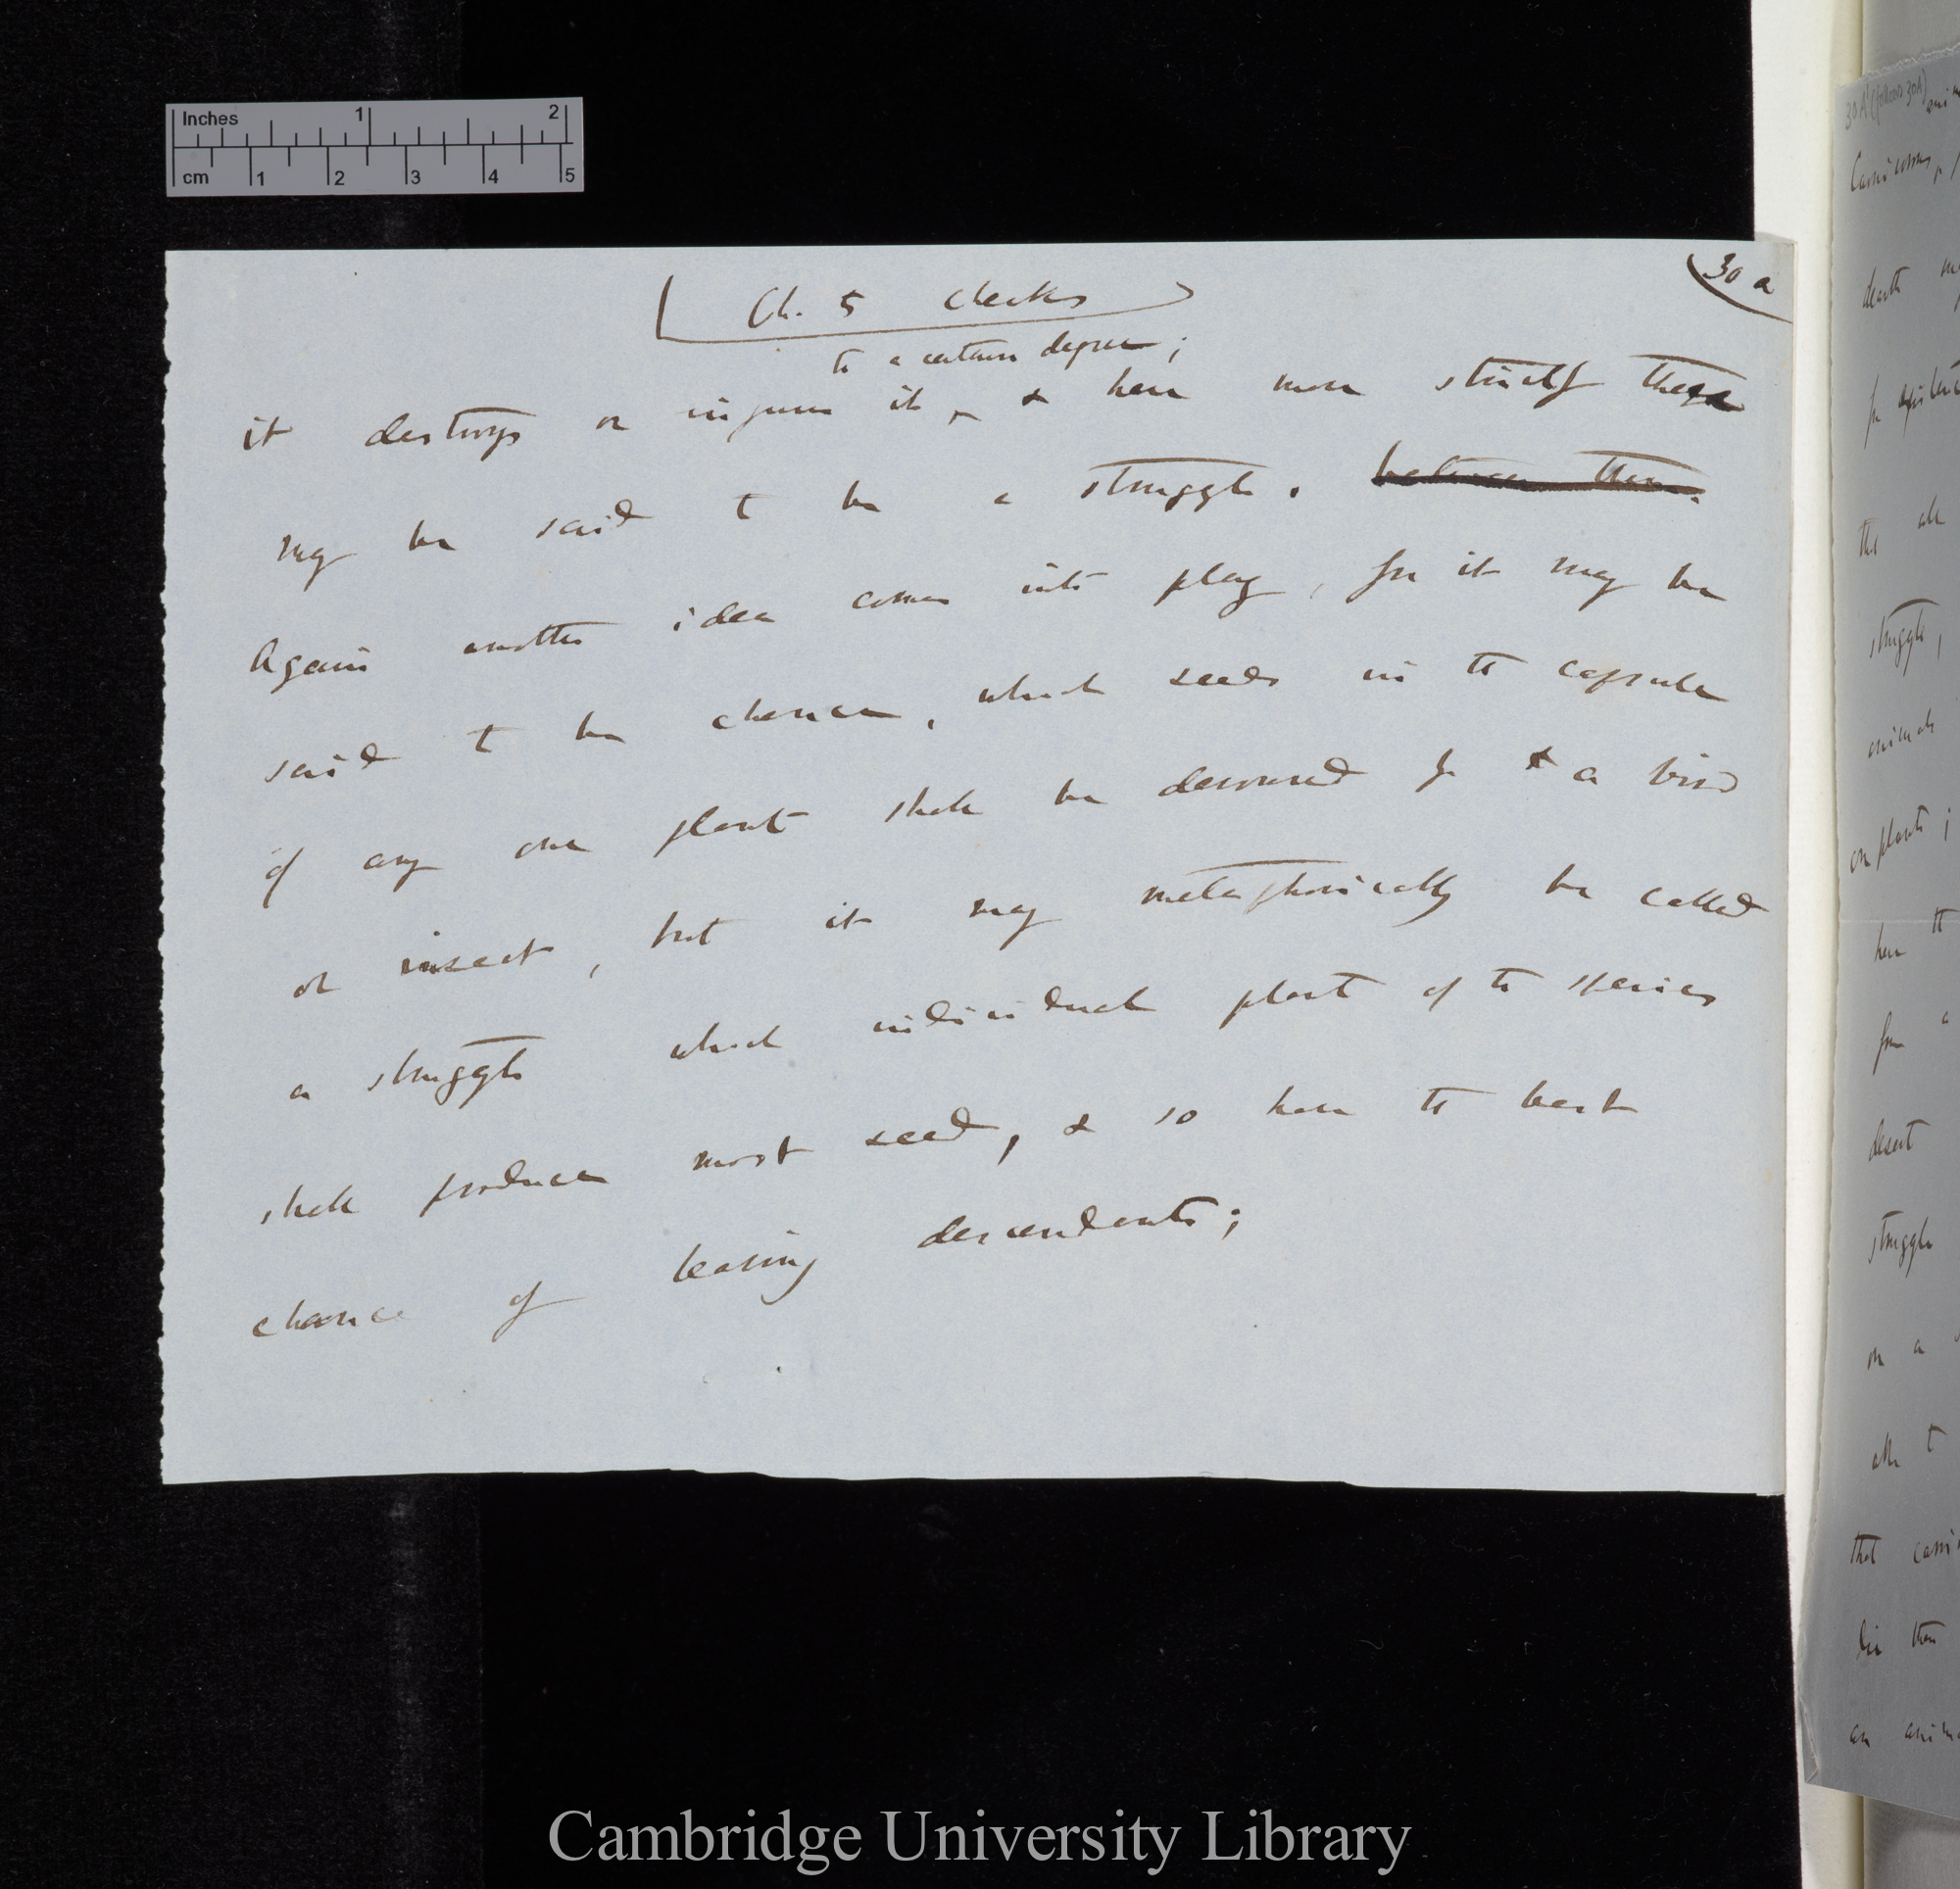 Inches 1 2
cm 1 2 3 4 5
30 a
Ch. 5 Checks
to a certain degree;
it destroys or injures it, & here more strictly there
may be said to be a struggle. between them.
Again another idea comes into play, for it may be
said to be chance, which seeds in the capsule
of any one plant shall be devoured by a bird
or insect, but it may metaphorically be called
a struggle which individual plant of the species
shall produce most seed, & so have the best
chance of leaving descendants;
30A1 (follows 30A)
Carnivorous,
death
for existence
this all
struggle,
animals
on plants;
here the
from a
desert
struggle
on a
all t
that
die then
an
Cambridge University Library